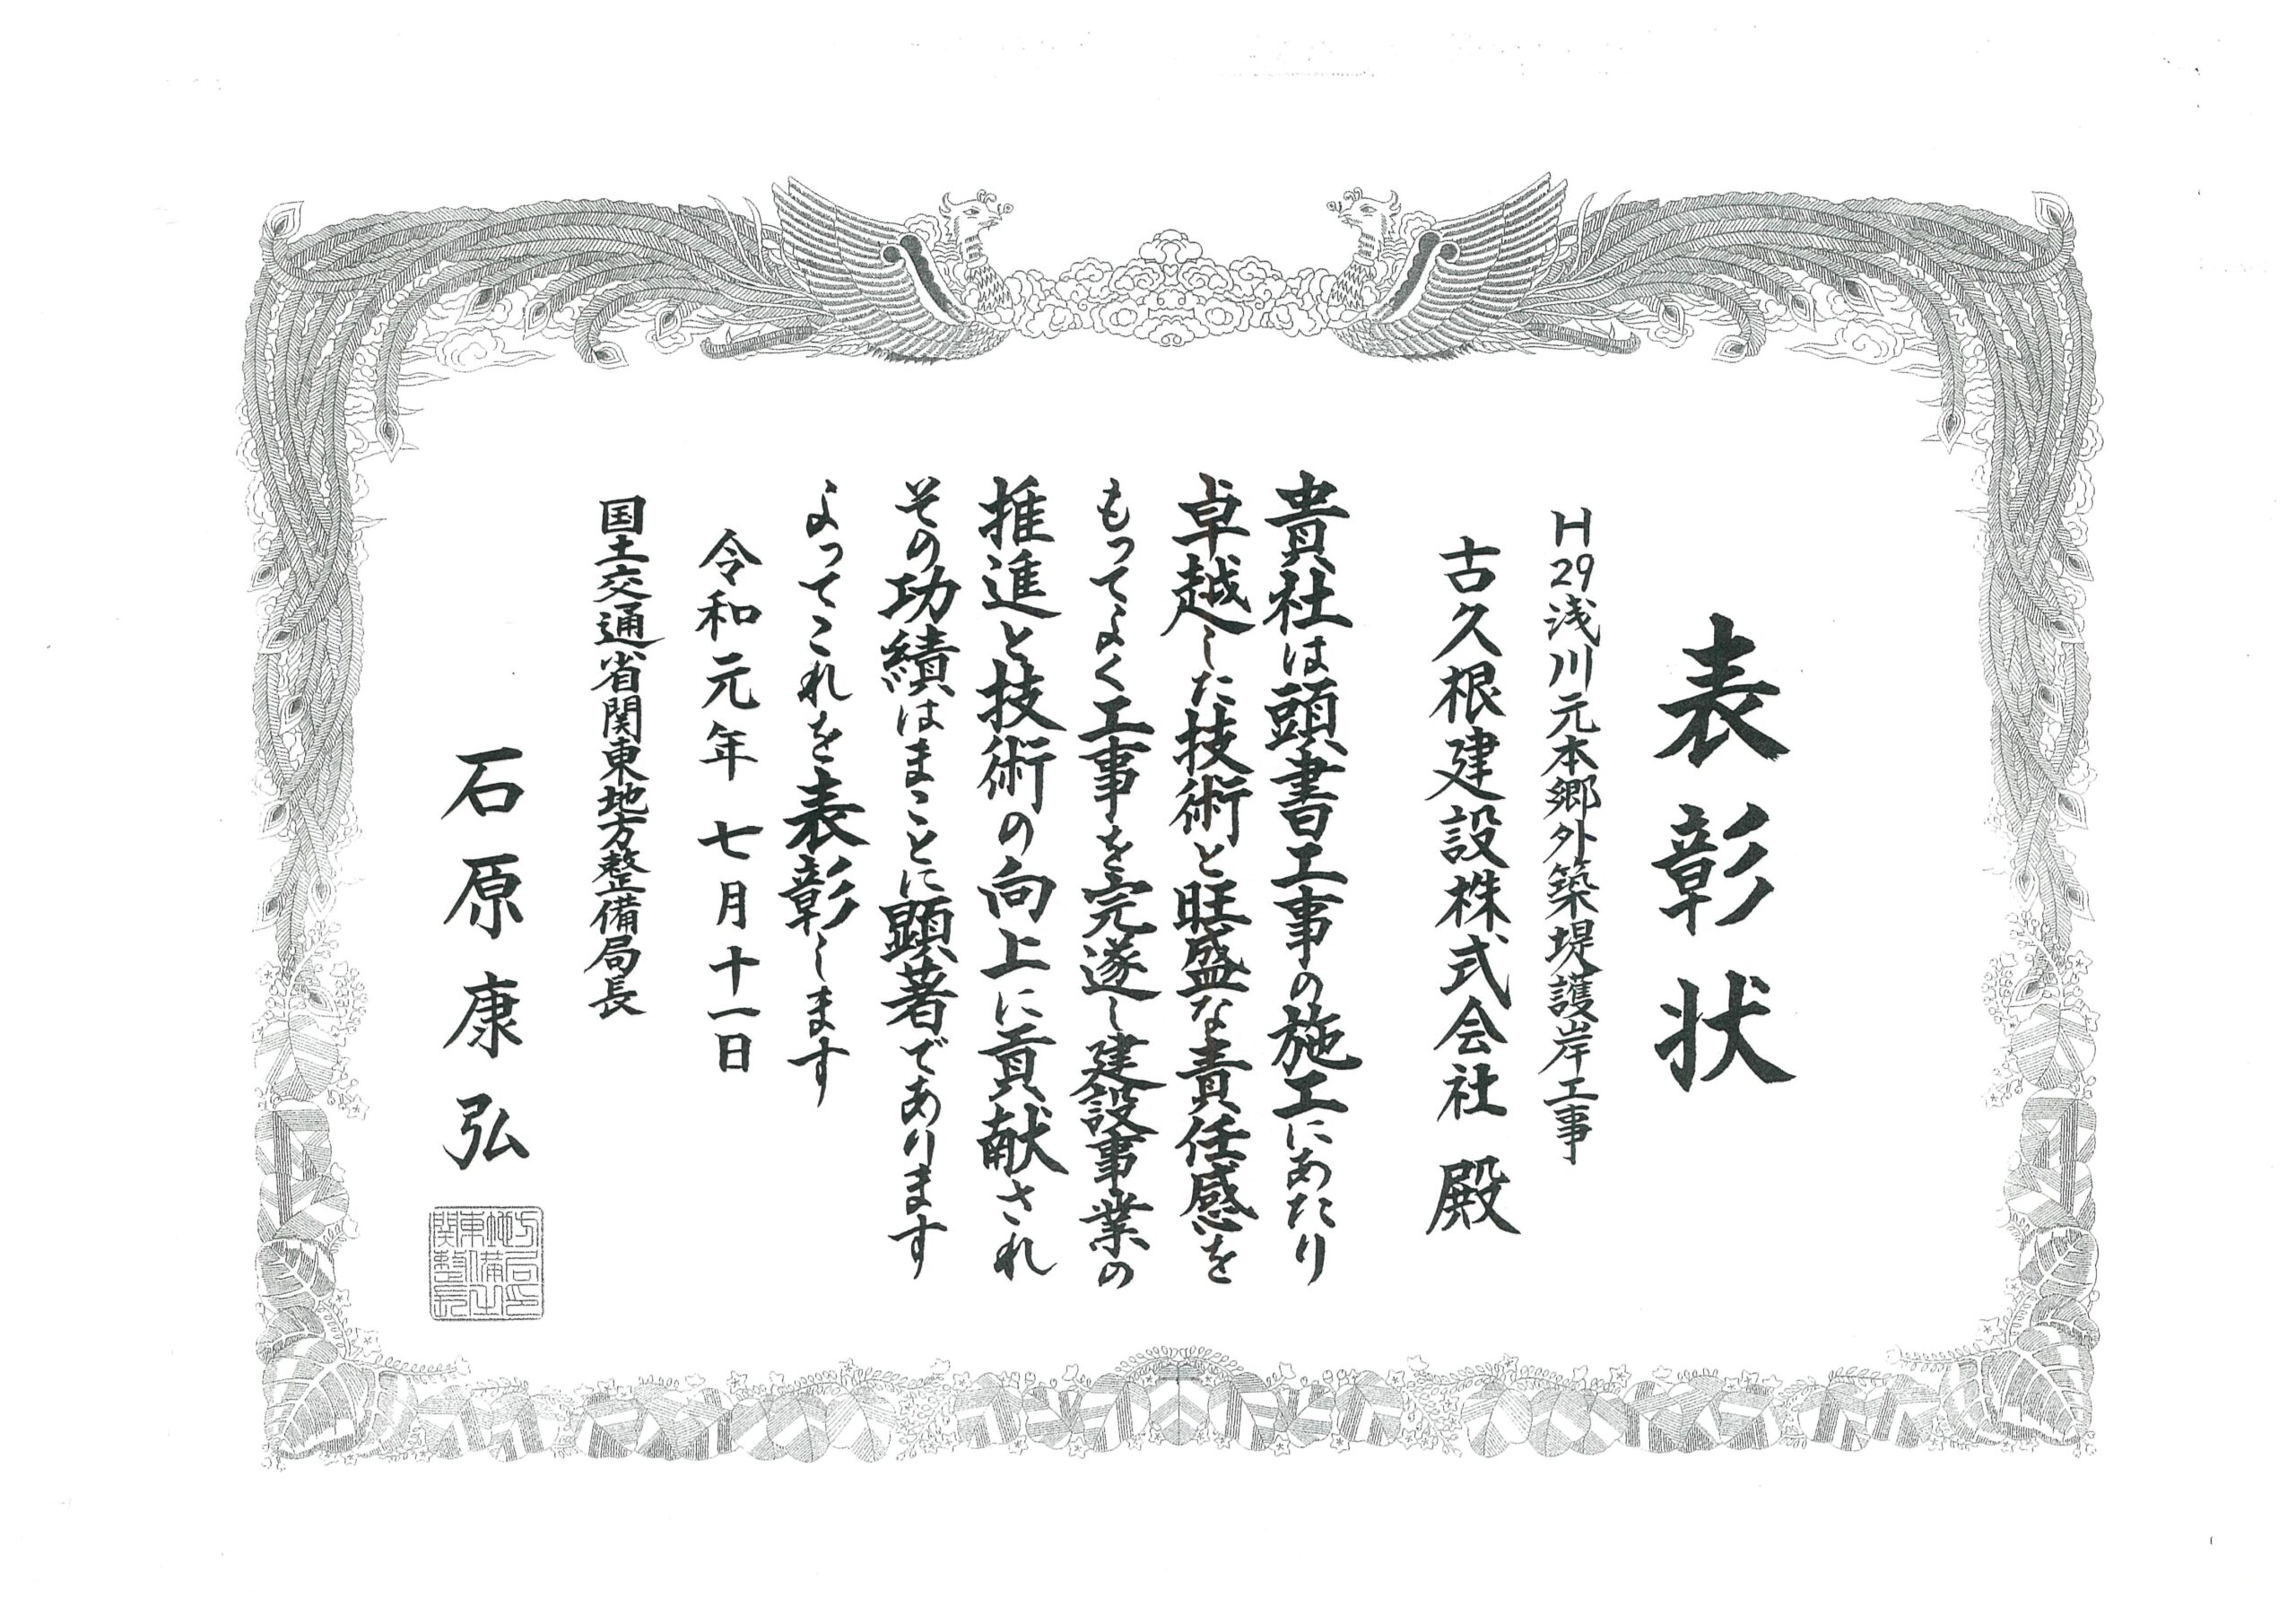 表彰状
H29浅川元本郷外築堤護岸工事
古久根建設株式会社 殿
貴社は頭書工事の施工にあたり
卓越した技術と旺盛な責任感を
もってよく工事を完遂し建設事業の
推進と技術の向上に貢献され
その功績はまことに顕著であります
よってこれを表彰します
令和元年 七月十一日
国土交通省関東地方整備局長
石原康弘